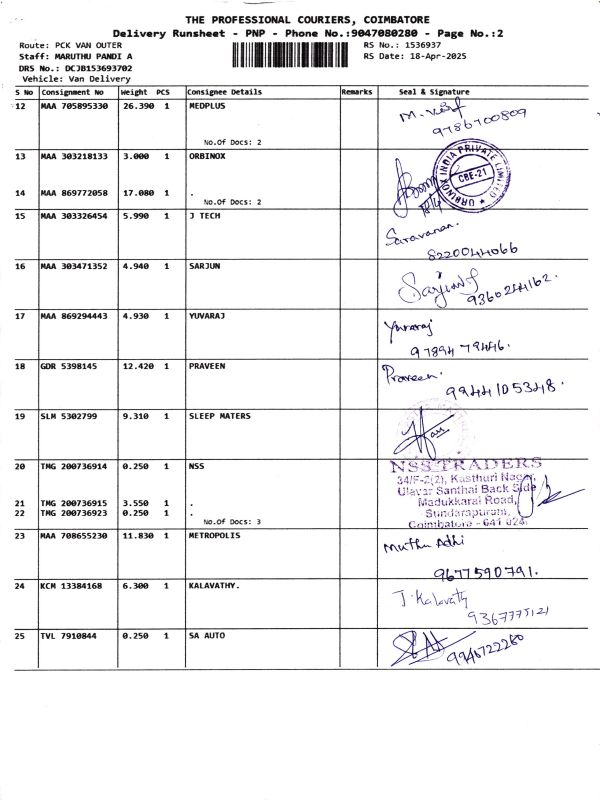 THE PROFESSIONAL COURIERS, COIMBATORE
Delivery Runsheet - PNP - Phone No.:9047080280 - Page No.:2
Route: PCK VAN OUTER RS No.: 1536937
Staff: MARUTHU PANDI A RS Date: 18-Apr-2025
DRS No.: DCJB153693702
Vehicle: Van Delivery
S No Consignment No Weight PCS Consignee Details Remarks Seal & Signature
12 MAA 705895330 26.390 1 MEDPLUS
9786700809
No.Of Docs: 2
13 MAA 303218133 3.000 1 ORBINOX
ORBINOX INDIA PRIVATE LIMITED
CBE-21
14 MAA 869772058 17.080 1 .
No.Of Docs: 2
18/4
15 MAA 303326454 5.990 1 J TECH
Saravanan.
8220044066
16 MAA 303471352 4.940 1 SARJUN
Sarjun
9360244162.
17 MAA 869294443 4.930 1 YUVARAJ
Yuvaraj
97894 79446.
18 GDR 5398145 12.420 1 PRAVEEN
Praveen.
9944105348.
19 SLM 5302799 9.310 1 SLEEP MATERS
20 TMG 200736914 0.250 1 NSS
NSS TRADERS
34/F-2(2), Kasthuri Nagar,
Ulavar Santhai Back Side
Madukkarai Road,
Sundarapuram,
Coimbatore - 641 024.
21 TMG 200736915 3.550 1 .
22 TMG 200736923 0.250 1 .
No.Of Docs: 3
23 MAA 708655230 11.830 1 METROPOLIS
Muthu Adhi
9677590791.
24 KCM 13384168 6.300 1 KALAVATHY.
J. Kalavathy
9367775121
25 TVL 7910844 0.250 1 SA AUTO
9946722280